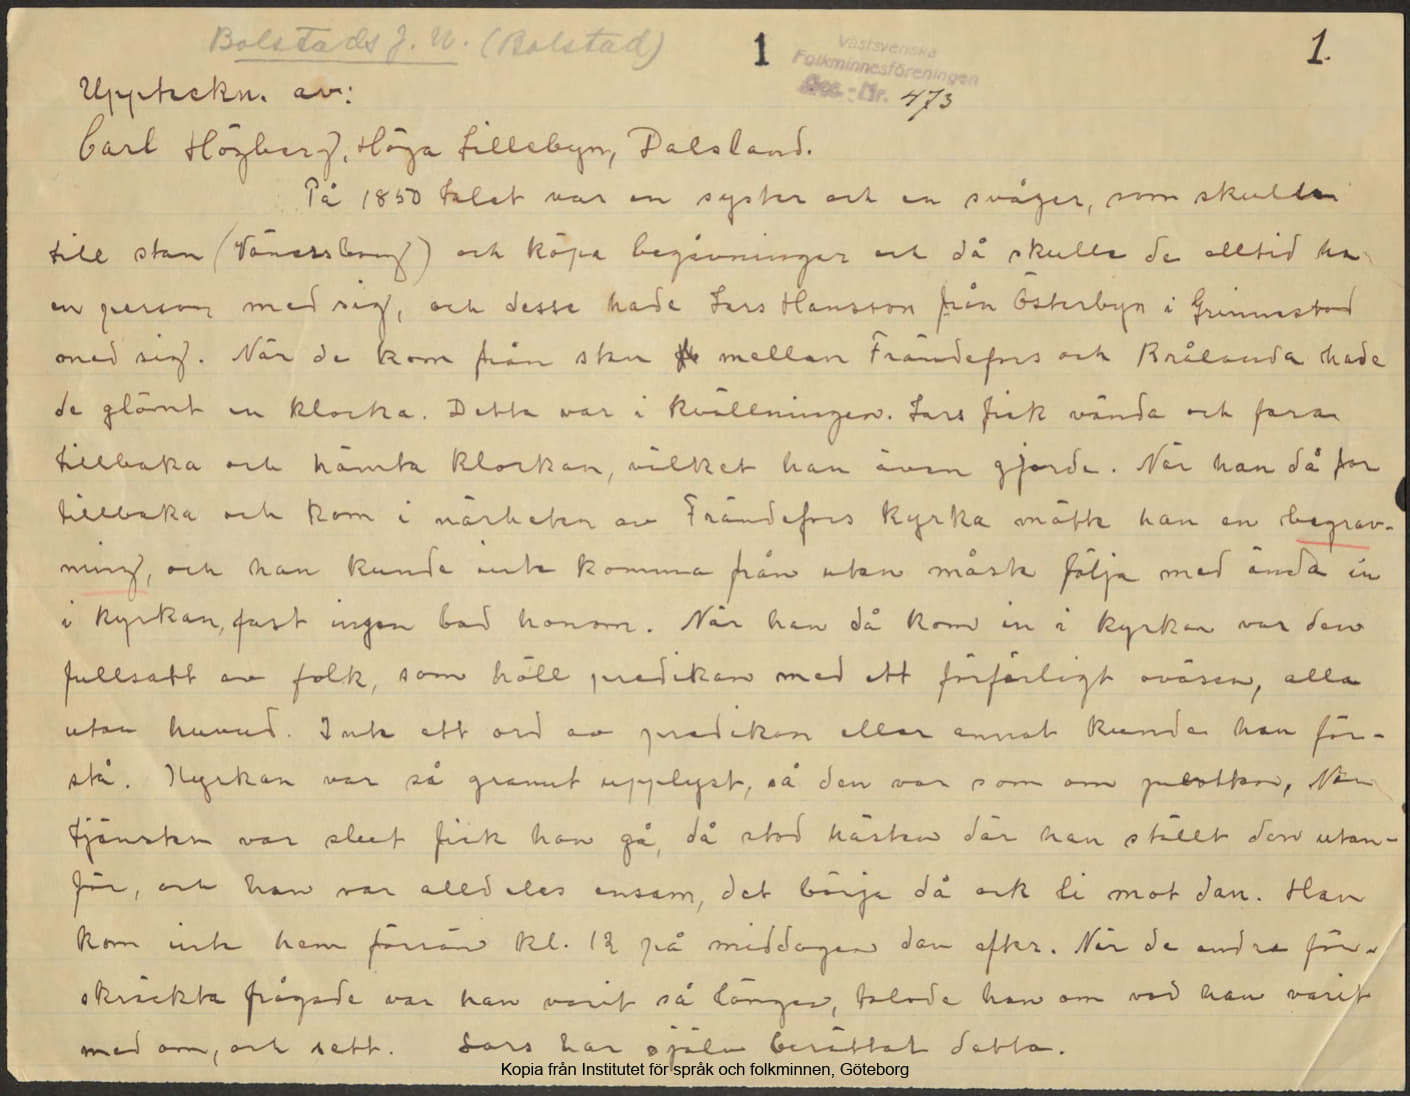 Bolstads S. N. (Bolstad)
1
Västsvenska
Folkminnesföreningen
Acc.-Nr. 473
1.
Uppteckn. av:
Carl Högberg, Höga Lillebyn, Dalsland.
På 1850 talet var en syster och en svåger, som skulle
till stan (Vänersborg) och köpa begåvningar och då skulle de alltid ha
en person med sig, och dessa hade Lars Hansson från Österbyn i Grinnestad
med sig. När de kom från stan mellan Frändefors och Brålanda hade
de glömt en klocka. Detta var i kvällningen. Lars fick vända och fara
tillbaka och hämta klockan, vilket han även gjorde. När han då for
tillbaka och kom i närheten av Frändefors kyrka mötte han en begrav-
ning, och han kunde inte komma från utan måste följa med ända in
i kyrkan, fast ingen bad honom. När han då kom in i kyrkan var den
fullsatt av folk, som höll predikan med ett förfärligt oväsen, alla
utan huvud. Inte ett ord av predikan eller annat kunde han för-
stå. Kyrkan var så grannt upplyst, så den var som om julottan, När
tjänsten var slut fick han gå, då stod hästen där han ställt den utan-
för, och han var alldeles ensam, det börja då ock li mot dan. Han
kom inte hem förrän kl. 12 på middagen dan efter. När de andra för-
skräckta frågade var han varit så länge, talade han om vad han varit
med om, och sett. Lars har själv berättat detta.
Kopia från Institutet för språk och folkminnen, Göteborg